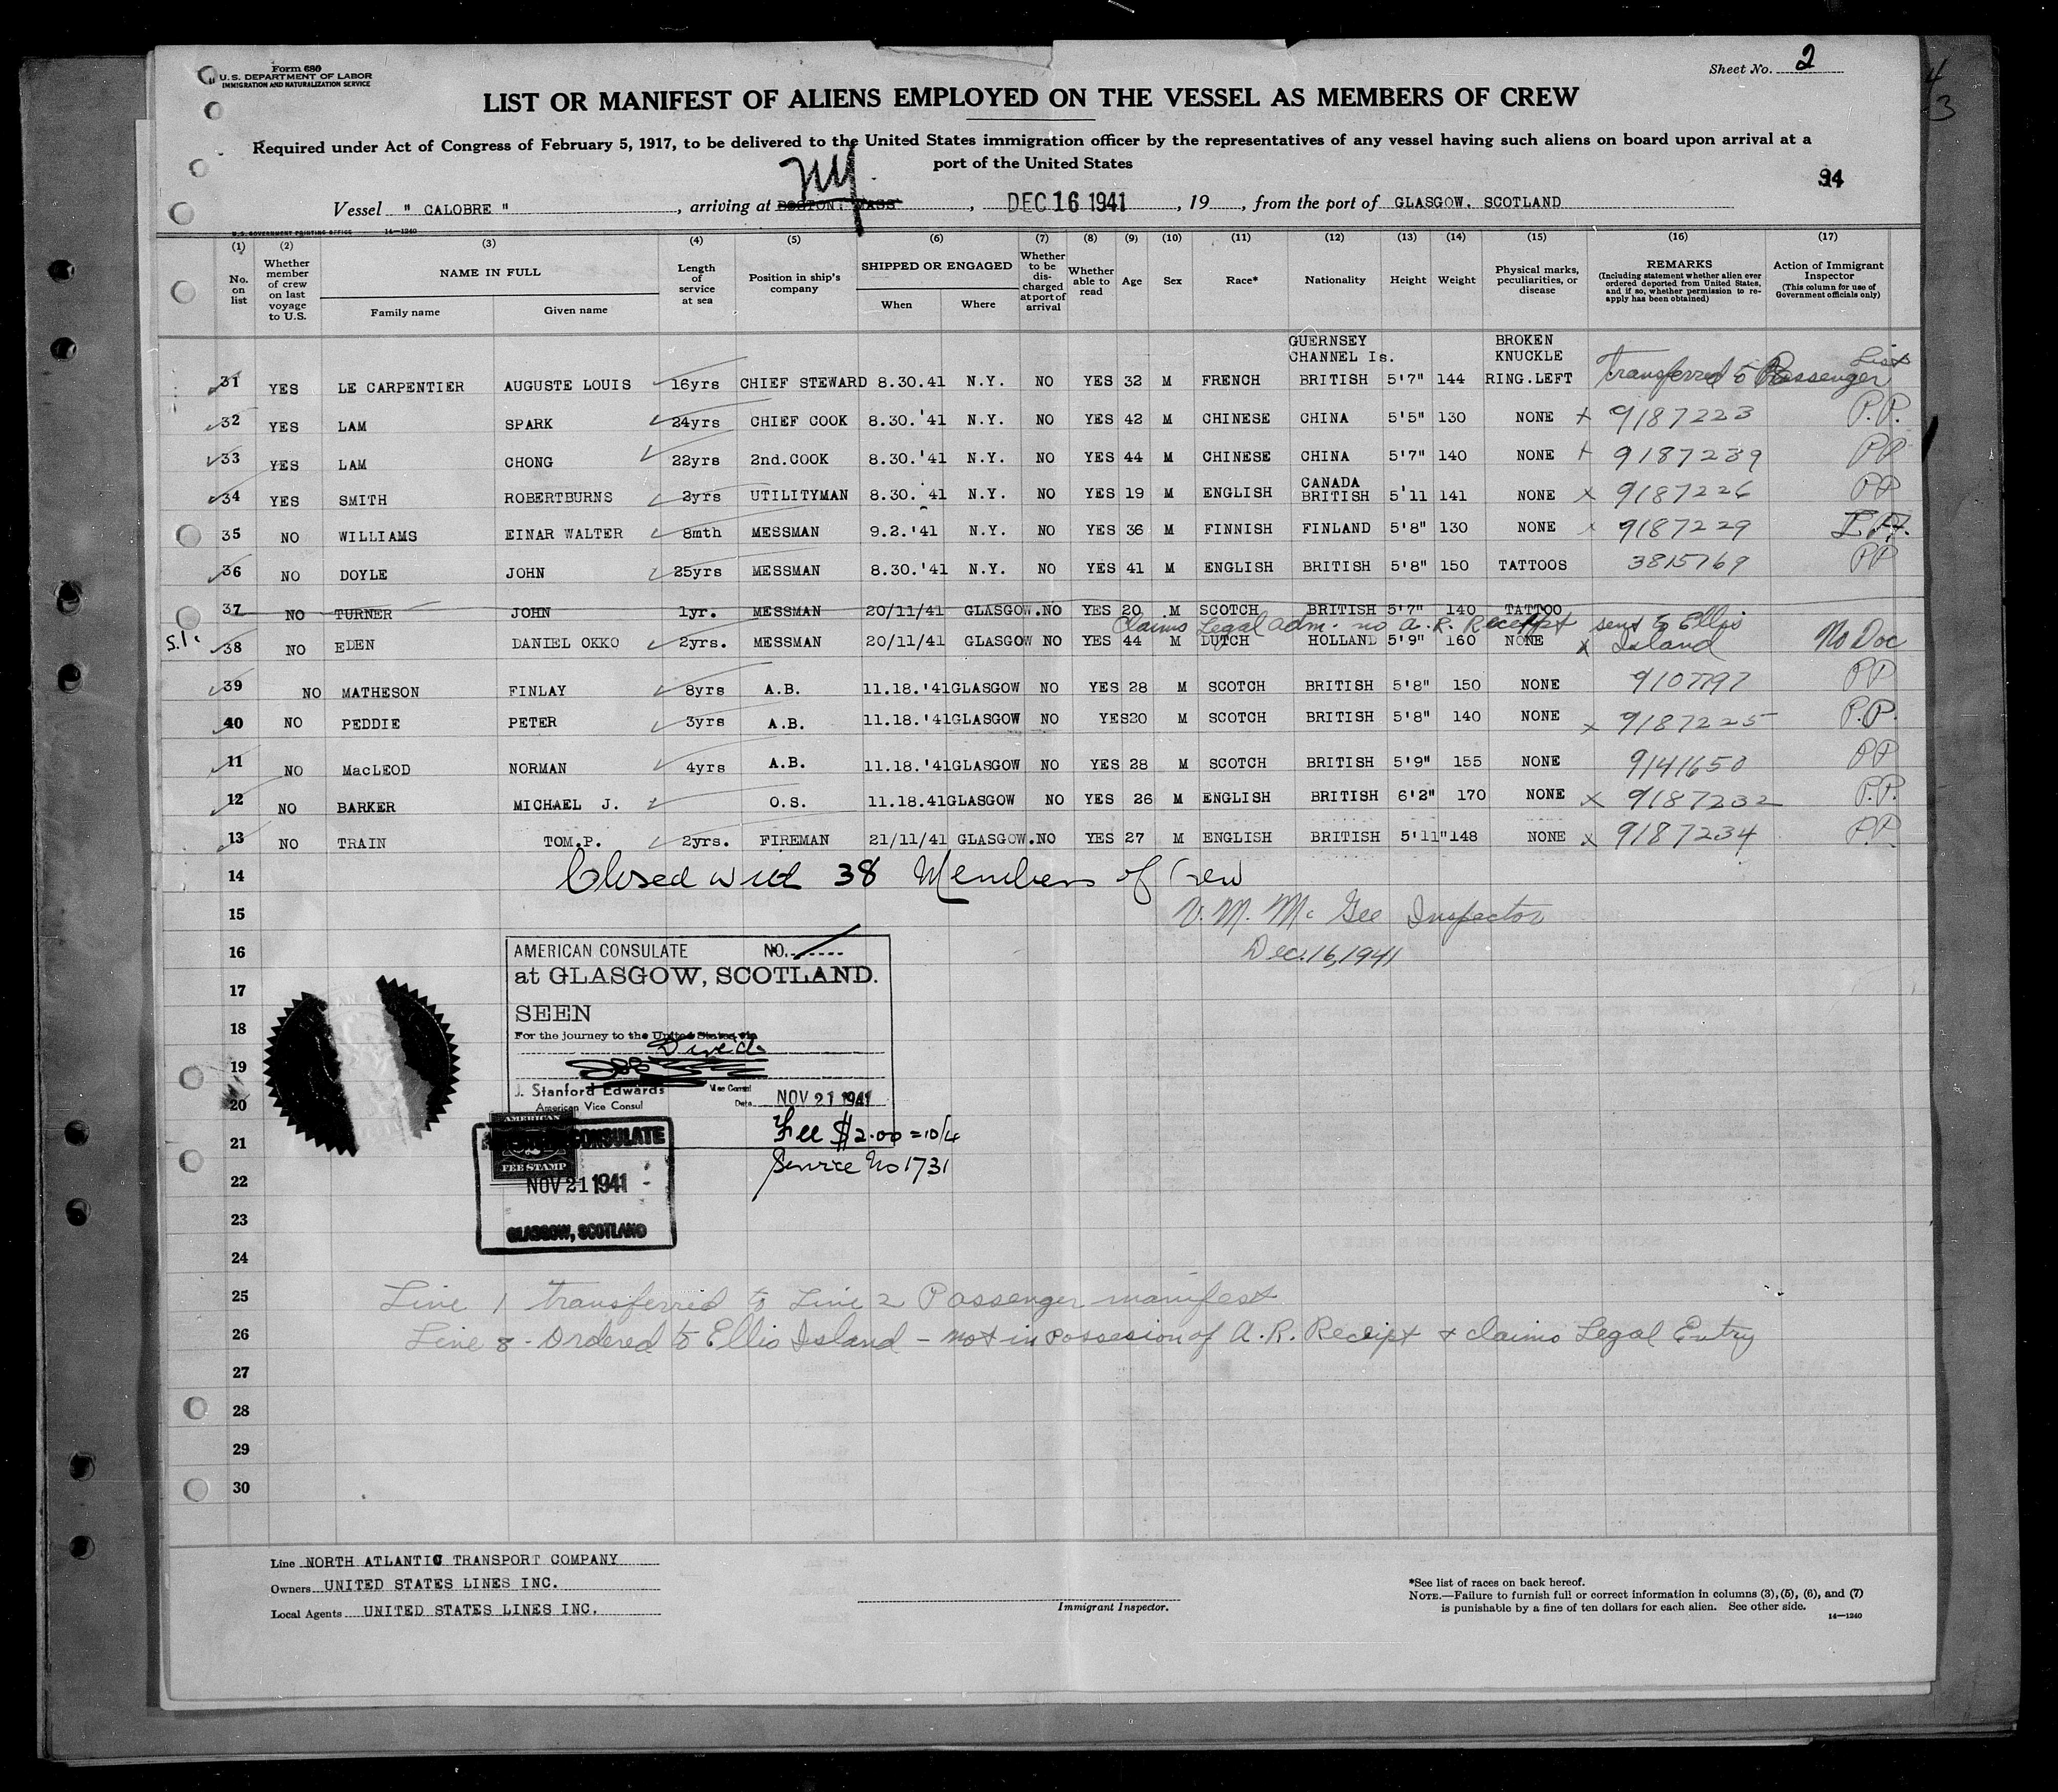 Form 680
U.S. DEPARTMENT OF LABOR
IMMIGRATION AND NATURALIZATION SERVICE
Sheet No. 2
4
3
LIST OR MANIFEST OF ALIENS EMPLOYED ON THE VESSEL AS MEMBERS OF CREW
Required under Act of Congress of February 5, 1917, to be delivered to the United States immigration officer by the representatives of any vessel having such aliens on board upon arrival at a
port of the United States
94
NY.
Vessel " CALOBRE ", arriving at BOSTON. MASS, DEC 16 1941, 19, from the port of GLASGOW. SCOTLAND
U.S. GOVERNMENT PRINTING OFFICE 14—1240
(1) (2) (3) (4) (5) (6) (7) (8) (9) (10) (11) (12) (13) (14) (15) (16) (17)
No. on list
Whether member of crew on last voyage to U.S.
NAME IN FULL
Family name
Given name
Length of service at sea
Position in ship's company
SHIPPED OR ENGAGED
When
Where
Whether to be discharged at port of arrival
Whether able to read
Age
Sex
Race*
Nationality
Height
Weight
Physical marks, peculiarities, or disease
REMARKS
(Including statement whether alien ever ordered deported from United States, and if so, whether permission to reapply has been obtained)
Action of Immigrant Inspector
(This column for use of Government officials only)
GUERNSEY CHANNEL Is. BROKEN KNUCKLE
31 YES LE CARPENTIER AUGUSTE LOUIS 16yrs CHIEF STEWARD 8.30.41 N.Y. NO YES 32 M FRENCH BRITISH 5'7" 144 RING.LEFT Transferred to Passenger List
32 YES LAM SPARK 24yrs CHIEF COOK 8.30.'41 N.Y. NO YES 42 M CHINESE CHINA 5'5" 130 NONE x 9187223 P.P.
33 YES LAM CHONG 22yrs 2nd.COOK 8.30.'41 N.Y. NO YES 44 M CHINESE CHINA 5'7" 140 NONE + 9187239 PP
34 YES SMITH ROBERTBURNS 2yrs UTILITYMAN 8.30.'41 N.Y. NO YES 19 M ENGLISH CANADA BRITISH 5'11 141 NONE x 9187226 PP
35 NO WILLIAMS EINAR WALTER 8mth MESSMAN 9.2.'41 N.Y. NO YES 36 M FINNISH FINLAND 5'8" 130 NONE x 9187229
36 NO DOYLE JOHN 25yrs MESSMAN 8.30.'41 N.Y. NO YES 41 M ENGLISH BRITISH 5'8" 150 TATTOOS 3815769 PP
37 NO TURNER JOHN 1yr. MESSMAN 20/11/41 GLASGOW.NO YES 20 M SCOTCH BRITISH 5'7" 140 TATTOO
Claims Legal adm. no A.R. Receipt sent to Ellis Island
S.I. 38 NO EDEN DANIEL OKKO 2yrs. MESSMAN 20/11/41 GLASGOW NO YES 44 M DUTCH HOLLAND 5'9" 160 NONE x No Doc
39 NO MATHESON FINLAY 8yrs A.B. 11.18.'41GLASGOW NO YES 28 M SCOTCH BRITISH 5'8" 150 NONE 9107797 PP
40 NO PEDDIE PETER 3yrs A.B. 11.18.'41GLASGOW NO YES20 M SCOTCH BRITISH 5'8" 140 NONE x 9187225 P.P.
11 NO MacLEOD NORMAN 4yrs A.B. 11.18.'41GLASGOW NO YES 28 M SCOTCH BRITISH 5'9" 155 NONE 9141650 PP
12 NO BARKER MICHAEL J. O.S. 11.18.41GLASGOW NO YES 26 M ENGLISH BRITISH 6'2" 170 NONE x 9187232 P.P.
13 NO TRAIN TOM.P. 2yrs. FIREMAN 21/11/41 GLASGOW.NO YES 27 M ENGLISH BRITISH 5'11"148 NONE x 9187234 P.P.
14 Closed with 38 Members of Crew
15 V. M. Mc Gee Inspector
16 Dec. 16, 1941
17
18
19
20
21
22
23
24
AMERICAN CONSULATE NO.
at GLASGOW, SCOTLAND.
SEEN
For the journey to the United States via
Direct
J. Stanford Edwards Vice Consul
American Vice Consul Date NOV 21 1941
Fee $2.00 = 10/4
Service No 1731
AMERICAN CONSULATE
FEE STAMP
NOV 21 1941
GLASGOW, SCOTLAND
25 Line 1 transferred to Line 2 Passenger manifest
26 Line 8 - Ordered to Ellis Island - not in possesion of A.R. Receipt + claims Legal Entry
27
28
29
30
Line NORTH ATLANTIC TRANSPORT COMPANY
Owners UNITED STATES LINES INC.
Local Agents UNITED STATES LINES INC.
Immigrant Inspector.
*See list of races on back hereof.
NOTE.—Failure to furnish full or correct information in columns (3), (5), (6), and (7)
is punishable by a fine of ten dollars for each alien. See other side.
14—1240